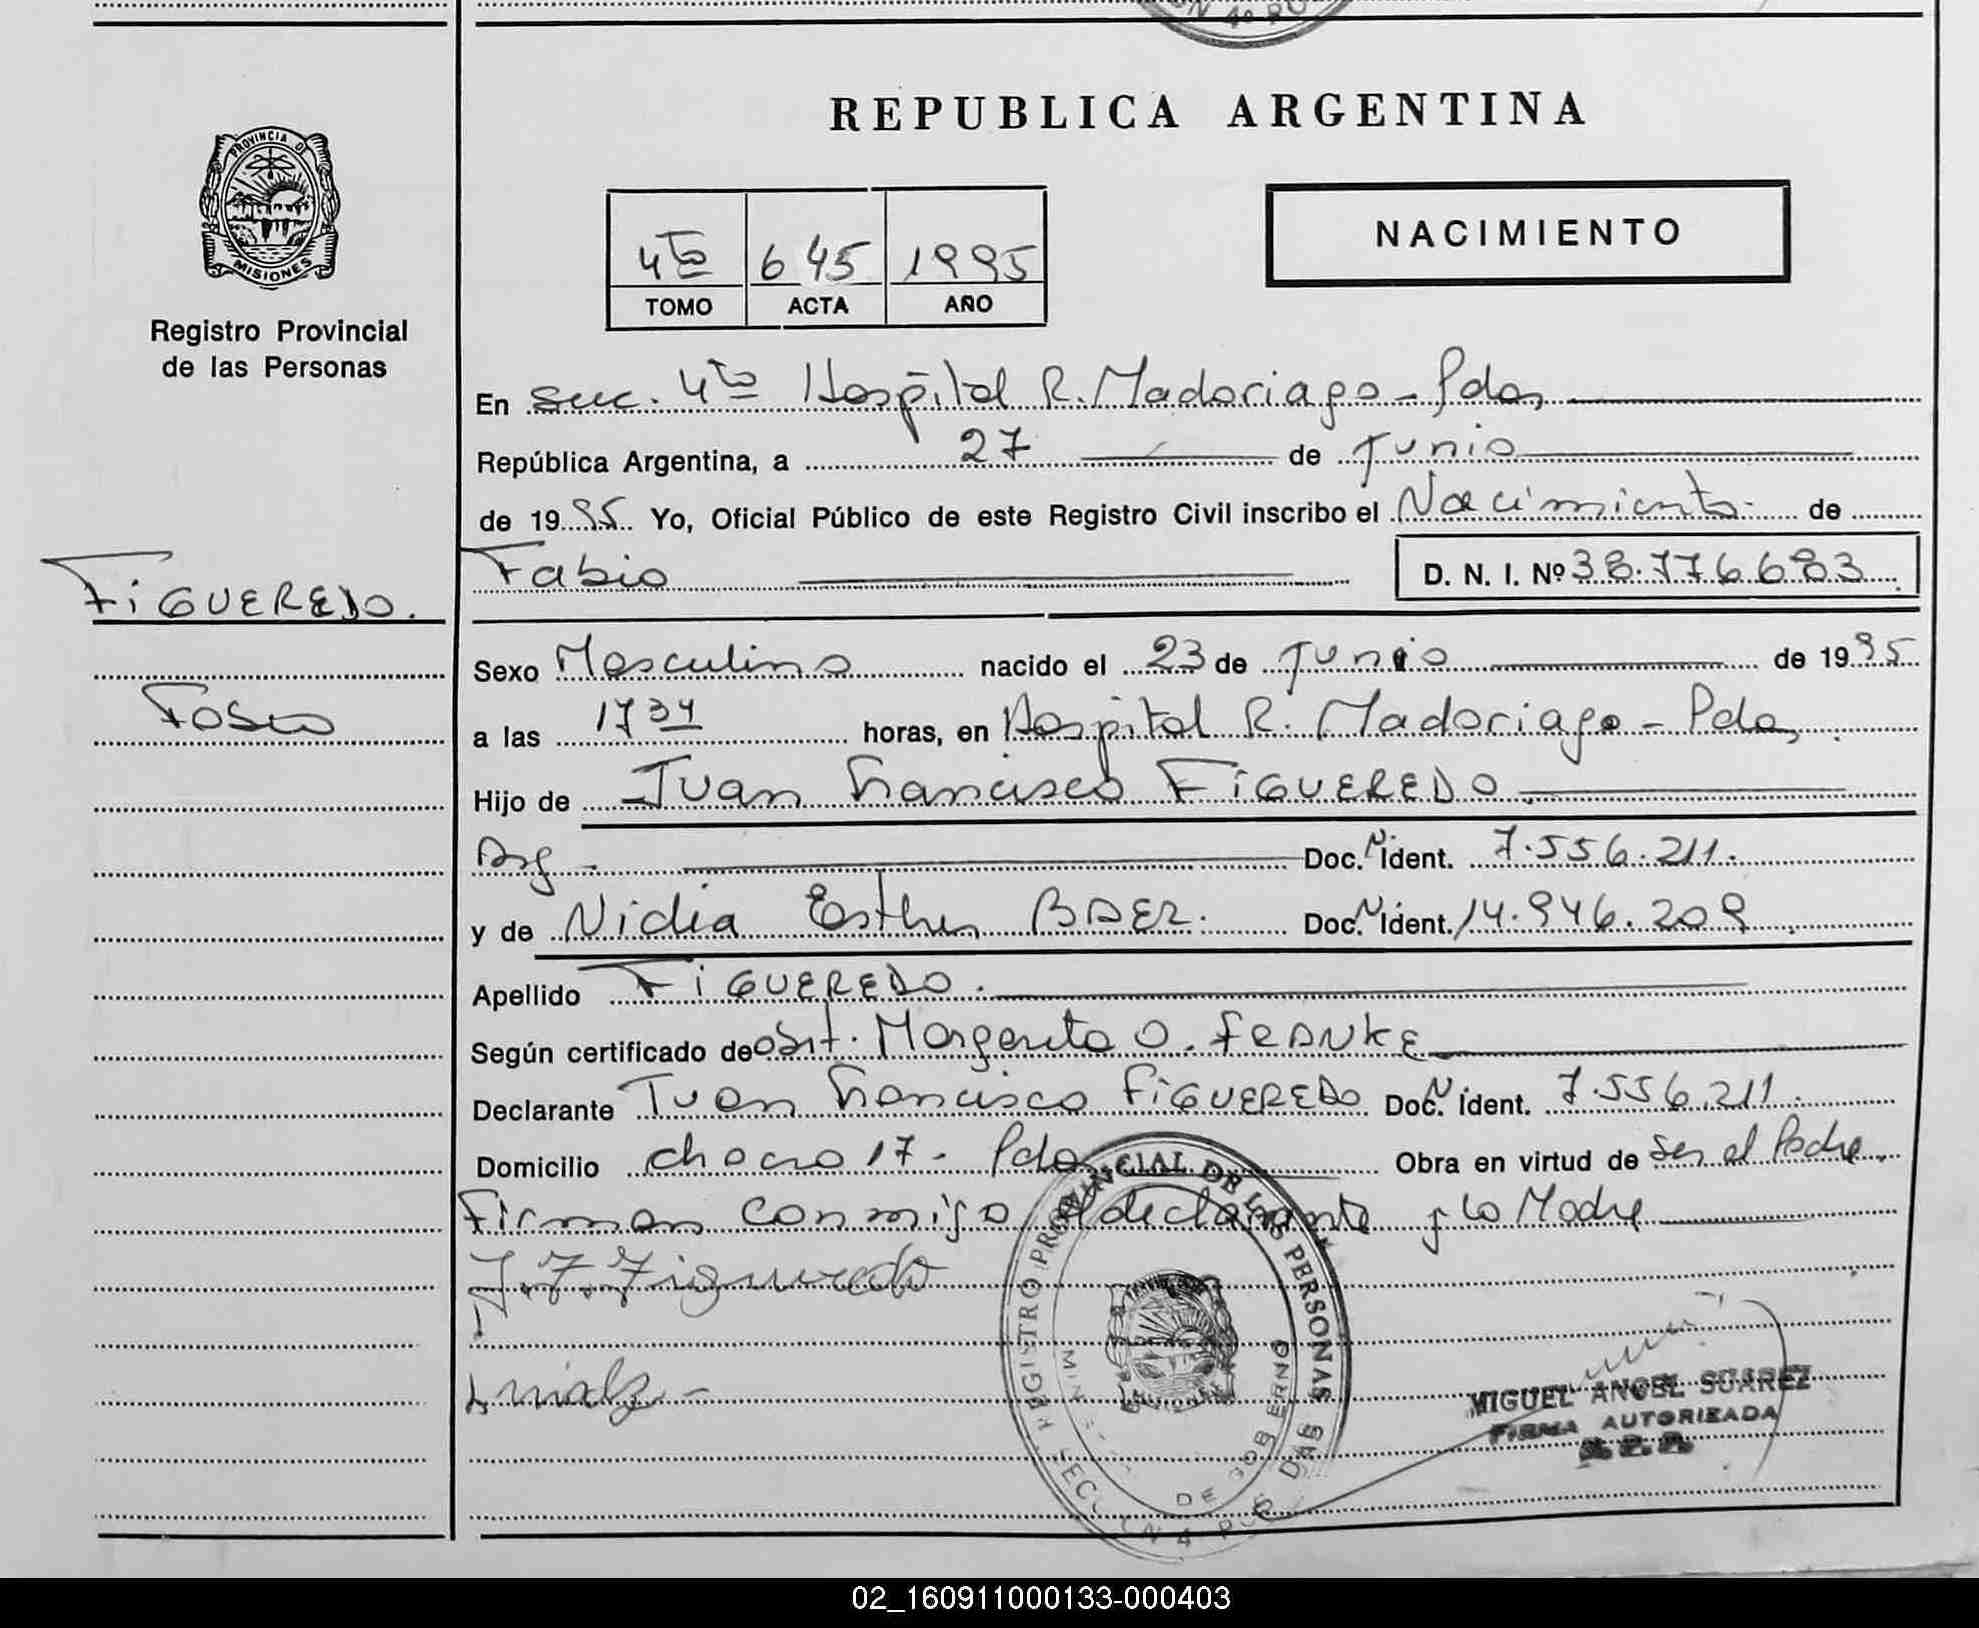 REPUBLICA ARGENTINA
PROVINCIA D
MISIONES
Registro Provincial
de las Personas
NACIMIENTO
4to 645 1995
TOMO ACTA AÑO
En Suc. 4to Hospital R. Madariaga - Pdas,
República Argentina, a 27 de Junio
de 1995. Yo, Oficial Público de este Registro Civil inscribo el Nacimiento de
FiGUEREDO.
Fabio D. N. I. Nº 38.776.683
Sexo Masculino nacido el 23 de Junio de 1995
Fabio
a las 1734 horas, en Hospital R. Madariaga - Pdas,
Hijo de Juan Francisco FiGUEREDO.
Arg. Doc. N. ident. 7.556.211.
y de Nidia Esther BAER. Doc. N. ident. 14.946.209
Apellido FiGUEREDO.
Según certificado de obst. Margarita O. FRANKE
Declarante Juan Francisco FiGUEREDO Doc. N. ident. 7.556.211.
Domicilio chacra 17 - Pdas Obra en virtud de Ser el Padre.
Firman conmigo el declarante y la Madre
J. F. Figueredo
REGISTRO PROVINCIAL DE LAS PERSONAS
DE GOBIERNO
MIGUEL ANGEL SUAREZ
FIRMA AUTORIZADA
02_160911000133-000403